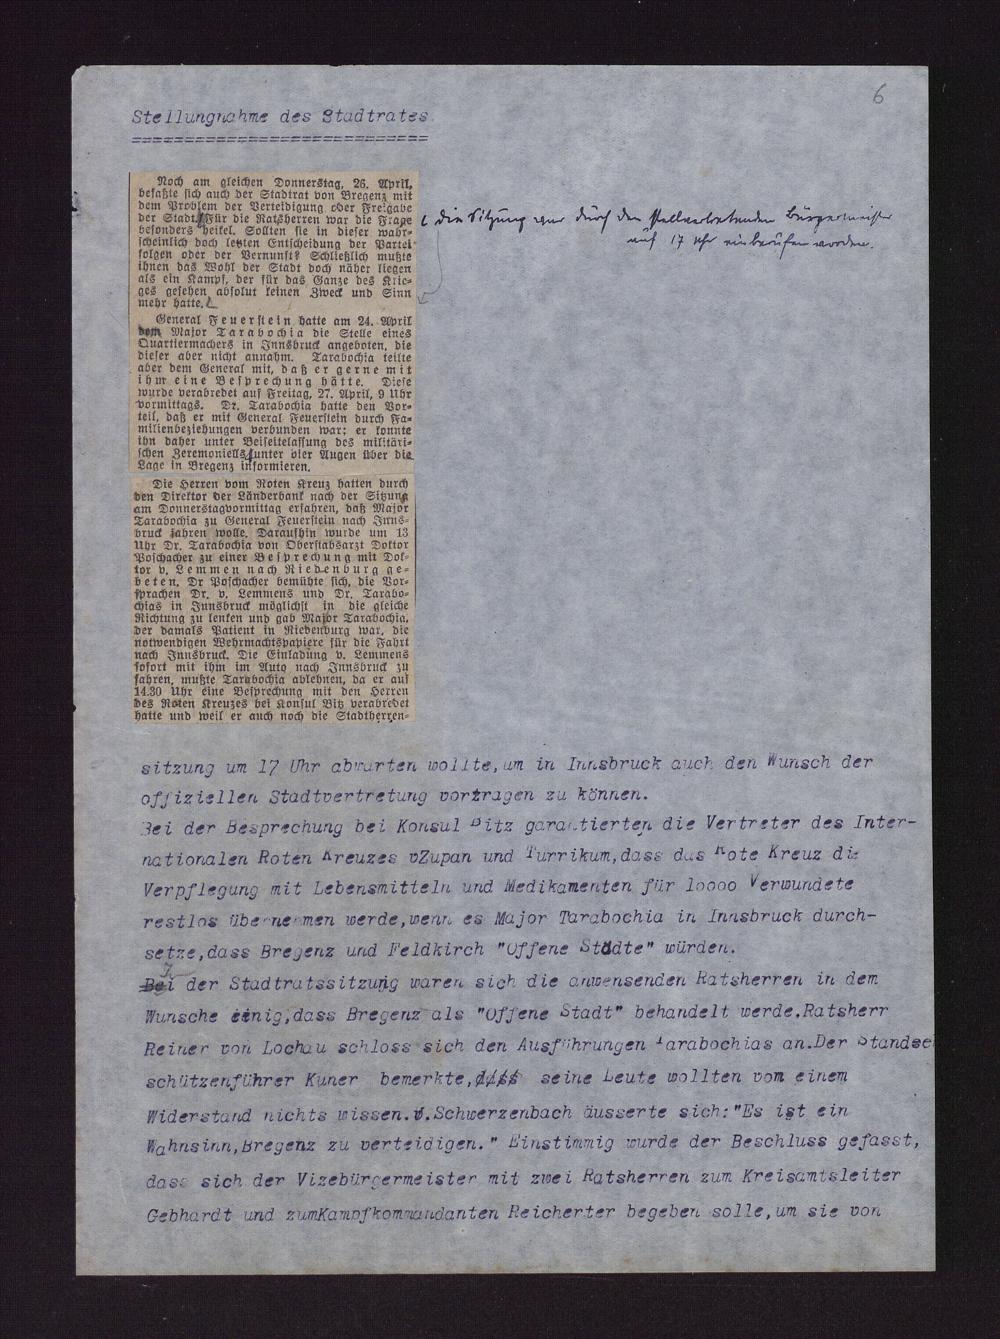 6
Stellungnahme des Stadtrates.
==============================
Noch am gleichen Donnerstag, 26. April,
befaßte sich auch der Stadtrat von Bregenz mit
dem Problem der Verteidigung oder Freigabe
der Stadt. Für die Ratsherren war die Frage
besonders heikel. Sollten sie in dieser wahr-
scheinlich doch letzten Entscheidung der Partei
folgen oder der Vernunft? Schließlich mußte
ihnen das Wohl der Stadt doch näher liegen
als ein Kampf, der für das Ganze des Krie-
ges gesehen absolut keinen Zweck und Sinn
mehr hatte.
die Sitzung war durch den stellvertretenden Bürgermeister
auf 17 Uhr einberufen worden.
General Feuerstein hatte am 24. April
dem Major Tarabochia die Stelle eines
Quartiermachers in Innsbruck angeboten, die
dieser aber nicht annahm. Tarabochia teilte
aber dem General mit, daß er gerne mit
ihm eine Besprechung hätte. Diese
wurde verabredet auf Freitag, 27. April, 9 Uhr
vormittags. Dr. Tarabochia hatte den Vor-
teil, daß er mit General Feuerstein durch Fa-
milienbeziehungen verbunden war; er konnte
ihn daher unter Beiseitelassung des militäri-
schen Zeremoniells unter vier Augen über die
Lage in Bregenz informieren.
Die Herren vom Roten Kreuz hatten durch
den Direktor der Länderbank nach der Sitzung
am Donnerstagvormittag erfahren, daß Major
Tarabochia zu General Feuerstein nach Inns-
bruck fahren wolle. Daraufhin wurde um 13
Uhr Dr. Tarabochia von Oberstabsarzt Doktor
Poschacher zu einer Besprechung mit Dok-
tor v. Lemmen nach Riedenburg ge-
beten. Dr Poschacher bemühte sich, die Vor-
sprachen Dr. v. Lemmens und Dr. Tarabo-
chias in Innsbruck möglichst in die gleiche
Richtung zu lenken und gab Major Tarabochia,
der damals Patient in Riedenburg war, die
notwendigen Wehrmachtspapiere für die Fahrt
nach Innsbruck. Die Einladung v. Lemmens
sofort mit ihm im Auto nach Innsbruck zu
fahren, mußte Tarabochia ablehnen, da er auf
14.30 Uhr eine Besprechung mit den Herren
des Roten Kreuzes bei Konsul Bitz verabredet
hatte und weil er auch noch die Stadtherren-
sitzung um 17 Uhr abwarten wollte,um in Innsbruck auch den Wunsch der
offiziellen Stadtvertretung vortragen zu können.
Bei der Besprechung bei Konsul Bitz garantierten die Vertreter des Inter-
nationalen Roten Kreuzes vZupan und Turrikum,dass das Rote Kreuz die
Verpflegung mit Lebensmitteln und Medikamenten für loooo Verwundete
restlos übernehmen werde,wenn es Major Tarabochia in Innsbruck durch-
setze,dass Bregenz und Feldkirch "Offene Städte" würden.
In der Stadtratssitzung waren sich die anwensenden Ratsherren in dem
Wunsche einig,dass Bregenz als "Offene Stadt" behandelt werde.Ratsherr
Reiner von Lochau schloss sich den Ausführungen Tarabochias an.Der Standse
schützenführer Kuner bemerkte, seine Leute wollten vom einem
Widerstand nichts wissen.v.Schwerzenbach äusserte sich:"Es ist ein
Wahnsinn,Bregenz zu verteidigen." Einstimmig wurde der Beschluss gefasst,
dass sich der Vizebürgermeister mit zwei Ratsherren zum Kreisamtsleiter
Gebhardt und zumKampfkommandanten Reicherter begeben solle,um sie von